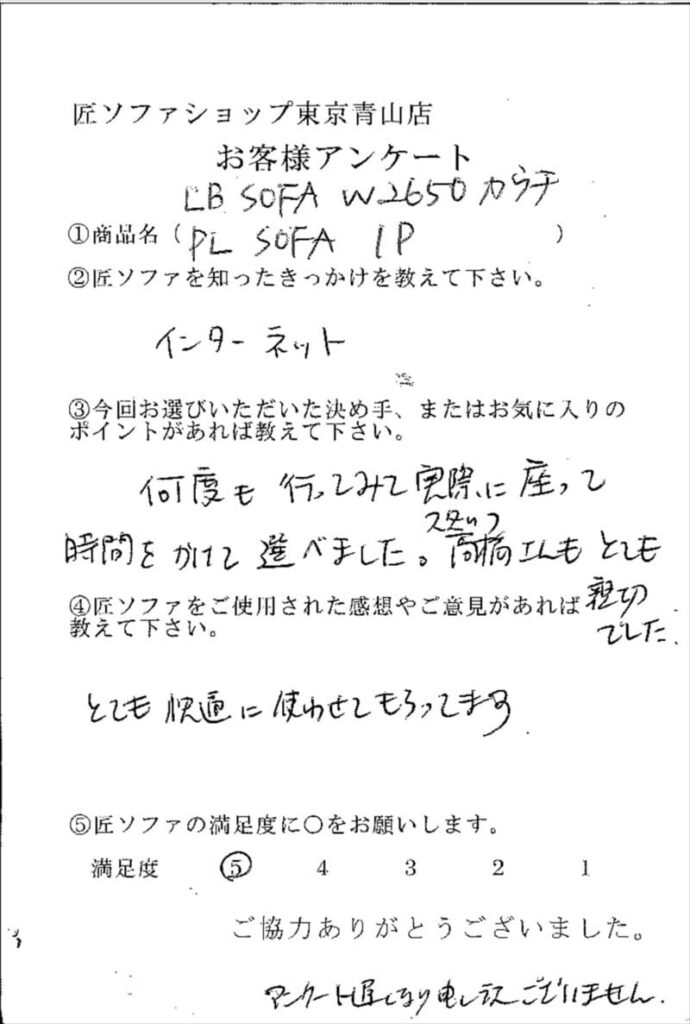 匠ソファショップ東京青山店
お客様アンケート
LB SOFA W2650 カウチ
①商品名（PL SOFA 1P ）
②匠ソファを知ったきっかけを教えて下さい。
インターネット
③今回お選びいただいた決め手、またはお気に入りの
ポイントがあれば教えて下さい。
何度も行ってみて実際に座って
時間をかけて選べました。スタッフ高橋さんもとても
親切
でした.
④匠ソファをご使用された感想やご意見があれば
教えて下さい。
とても快適に使わせてもらってます
⑤匠ソファの満足度に〇をお願いします。
満足度 5 4 3 2 1
ご協力ありがとうございました。
アンケート遅くなり申し訳ございません.